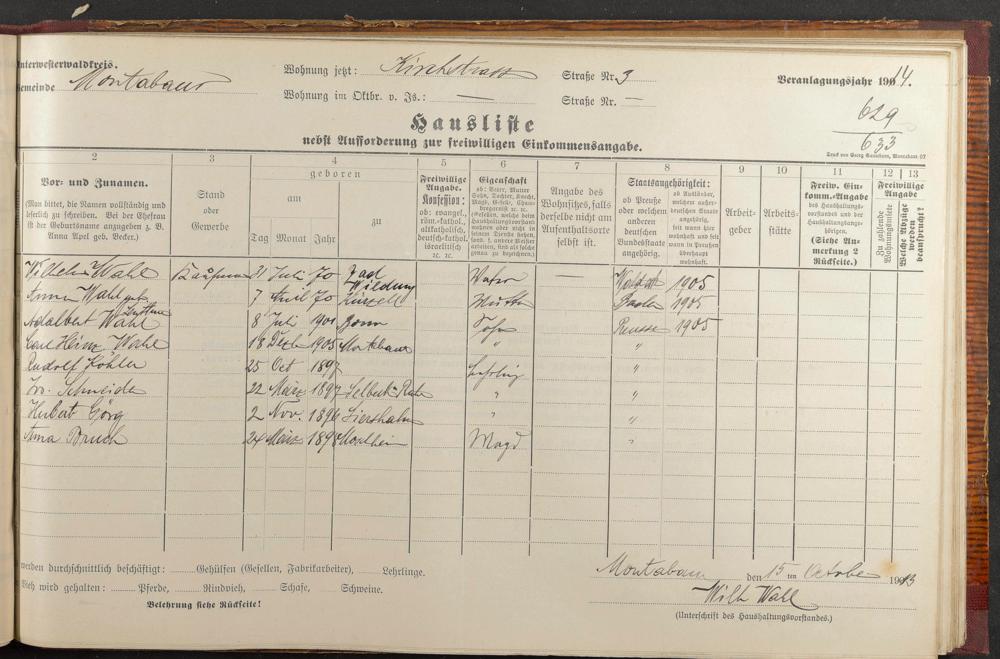 Unterwesterwaldkreis.
Gemeinde Montabaur
Wohnung jetzt: Kirchstrasse Straße Nr. 3
Wohnung im Oktbr. v. Js.: — Straße Nr. —
Veranlagungsjahr 1914.
629
633
Hausliste
nebst Aufforderung zur freiwilligen Einkommensangabe.
Druck von Georg Sauerborn, Montabaur. 07
2 3 4 5 6 7 8 9 10 11 12 13
Vor- und Zunamen.
(Man bittet, die Namen vollständig und
leserlich zu schreiben. Bei der Ehefrau
ist der Geburtsname anzugeben z. B.
Anna Apel geb. Becker.)
Stand
oder
Gewerbe
geboren
am
Tag Monat Jahr
zu
Freiwillige
Angabe.
Konfession:
ob: evangel.,
röm.-kathol.,
altkatholisch,
deutsch-kathol.
israelitisch
ꝛc. ꝛc.
Eigenschaft
ob: Vater, Mutter
Sohn, Tochter, Knecht,
Magd,
Angabe des
Wohnsitzes, falls
derselbe nicht am
Aufenthaltsorte
selbst ist.
Staatsangehörigkeit:
ob Preuße
oder welchem
anderen
deutschen
Bundesstaate
angehörig.
ob Ausländer,
welchem außer-
deutschen Staate
angehörig,
seit wann hier
wohnhaft und seit
wann in Preußen
überhaupt
wohnhaft.
Arbeit-
geber
Arbeits-
stätte
Freiw. Ein-
komm.-Angabe
des Haushaltungs-
vorstandes und der
Haushaltungsange-
hörigen.
(Siehe An-
merkung 2
Rückseite.)
Freiwillige
Angabe
Zu zahlende
Wohnungsmiete
Welche Abzüge
werden
beansprucht?
Wilhelm Wahl Kaufmann 21 Juli 70 Bad Wildung Vater Waldeck 1905
Anna Wahl geb. 7 April 70 Mutter 1905
Adalbert Wahl 8 Juli 1901 Bonn Sohn Preusse 1905
Carl Heinz Wahl 18 Dezb 1905 Montabaur " "
Rudolf Köhler 25 Oct 1897 Lehrling "
Schneider 22 März 1897 " "
Hubert Görg 2 Nov. 1896 " "
Anna Bruch 24 März 1898 Magd "
werden durchschnittlich beschäftigt: Gehülfen (Gesellen, Fabrikarbeiter), Lehrlinge.
Vieh wird gehalten: Pferde, Rindvieh, Schafe, Schweine.
Belehrung siehe Rückseite!
Montabaur den 15 ten October 1913
Wilh Wahl
(Unterschrift des Haushaltungsvorstandes.)